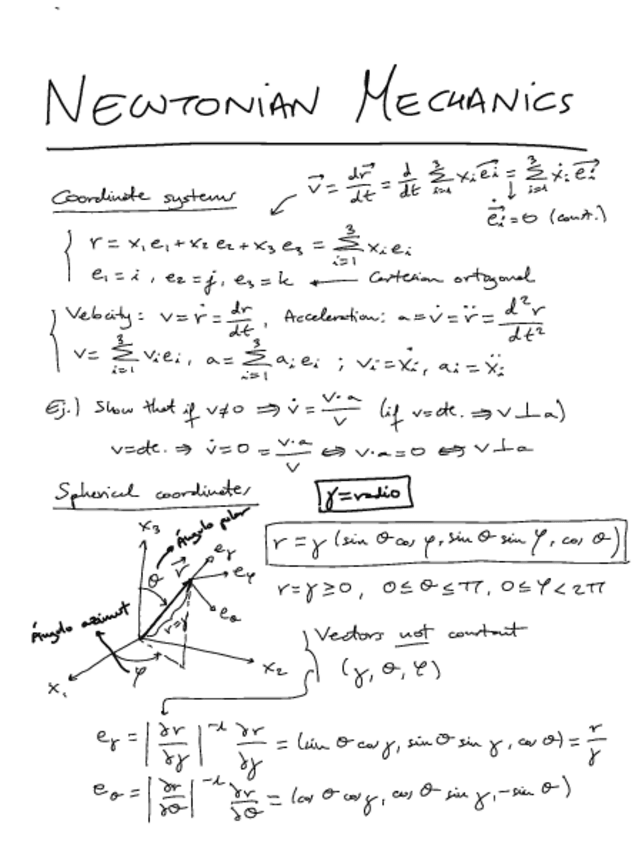 NEWTONIAN MECHANICS
Coordinate systems
v⃗ = dr⃗/dt = d/dt Σ_{i=1}^{3} xᵢ e⃗ᵢ = Σ_{i=1}^{3} ẋᵢ e⃗ᵢ
e⃗̇ᵢ = 0 (const.)
r = x₁e₁ + x₂e₂ + x₃e₃ = Σ_{i=1}^{3} xᵢeᵢ
e₁ = i, e₂ = j, e₃ = k ← Cartesian ortogonal
Velocity: v = ṙ = dr/dt, Acceleration: a = v̇ = r̈ = d²r/dt²
v = Σ_{i=1}^{3} vᵢeᵢ, a = Σ_{i=1}^{3} aᵢeᵢ ; vᵢ = ẋᵢ, aᵢ = ẍᵢ
Ej.) Show that if v≠0 ⇒ v̇ = v·a/v (if v=cte. ⇒ v⊥a)
v=cte. ⇒ v̇ = 0 = v·a/v ⇔ v·a = 0 ⇔ v⊥a
Spherical coordinates
γ = radio
r = γ (sin θ cos φ, sin θ sin φ, cos θ)
r = γ ≥ 0, 0 ≤ θ ≤ π, 0 ≤ φ < 2π
x₃
Ángulo polar
θ
r⃗
e_γ
e_φ
e_θ
r=γ
Ángulo azimut
φ
x₁
x₂
Vectors not constant
(γ, θ, φ)
e_γ = |∂r/∂γ|⁻¹ ∂r/∂γ = (sin θ cos γ, sin θ sin γ, cos θ) = r/γ
e_θ = |∂r/∂θ|⁻¹ ∂r/∂θ = (cos θ cos γ, cos θ sin γ, -sin θ)